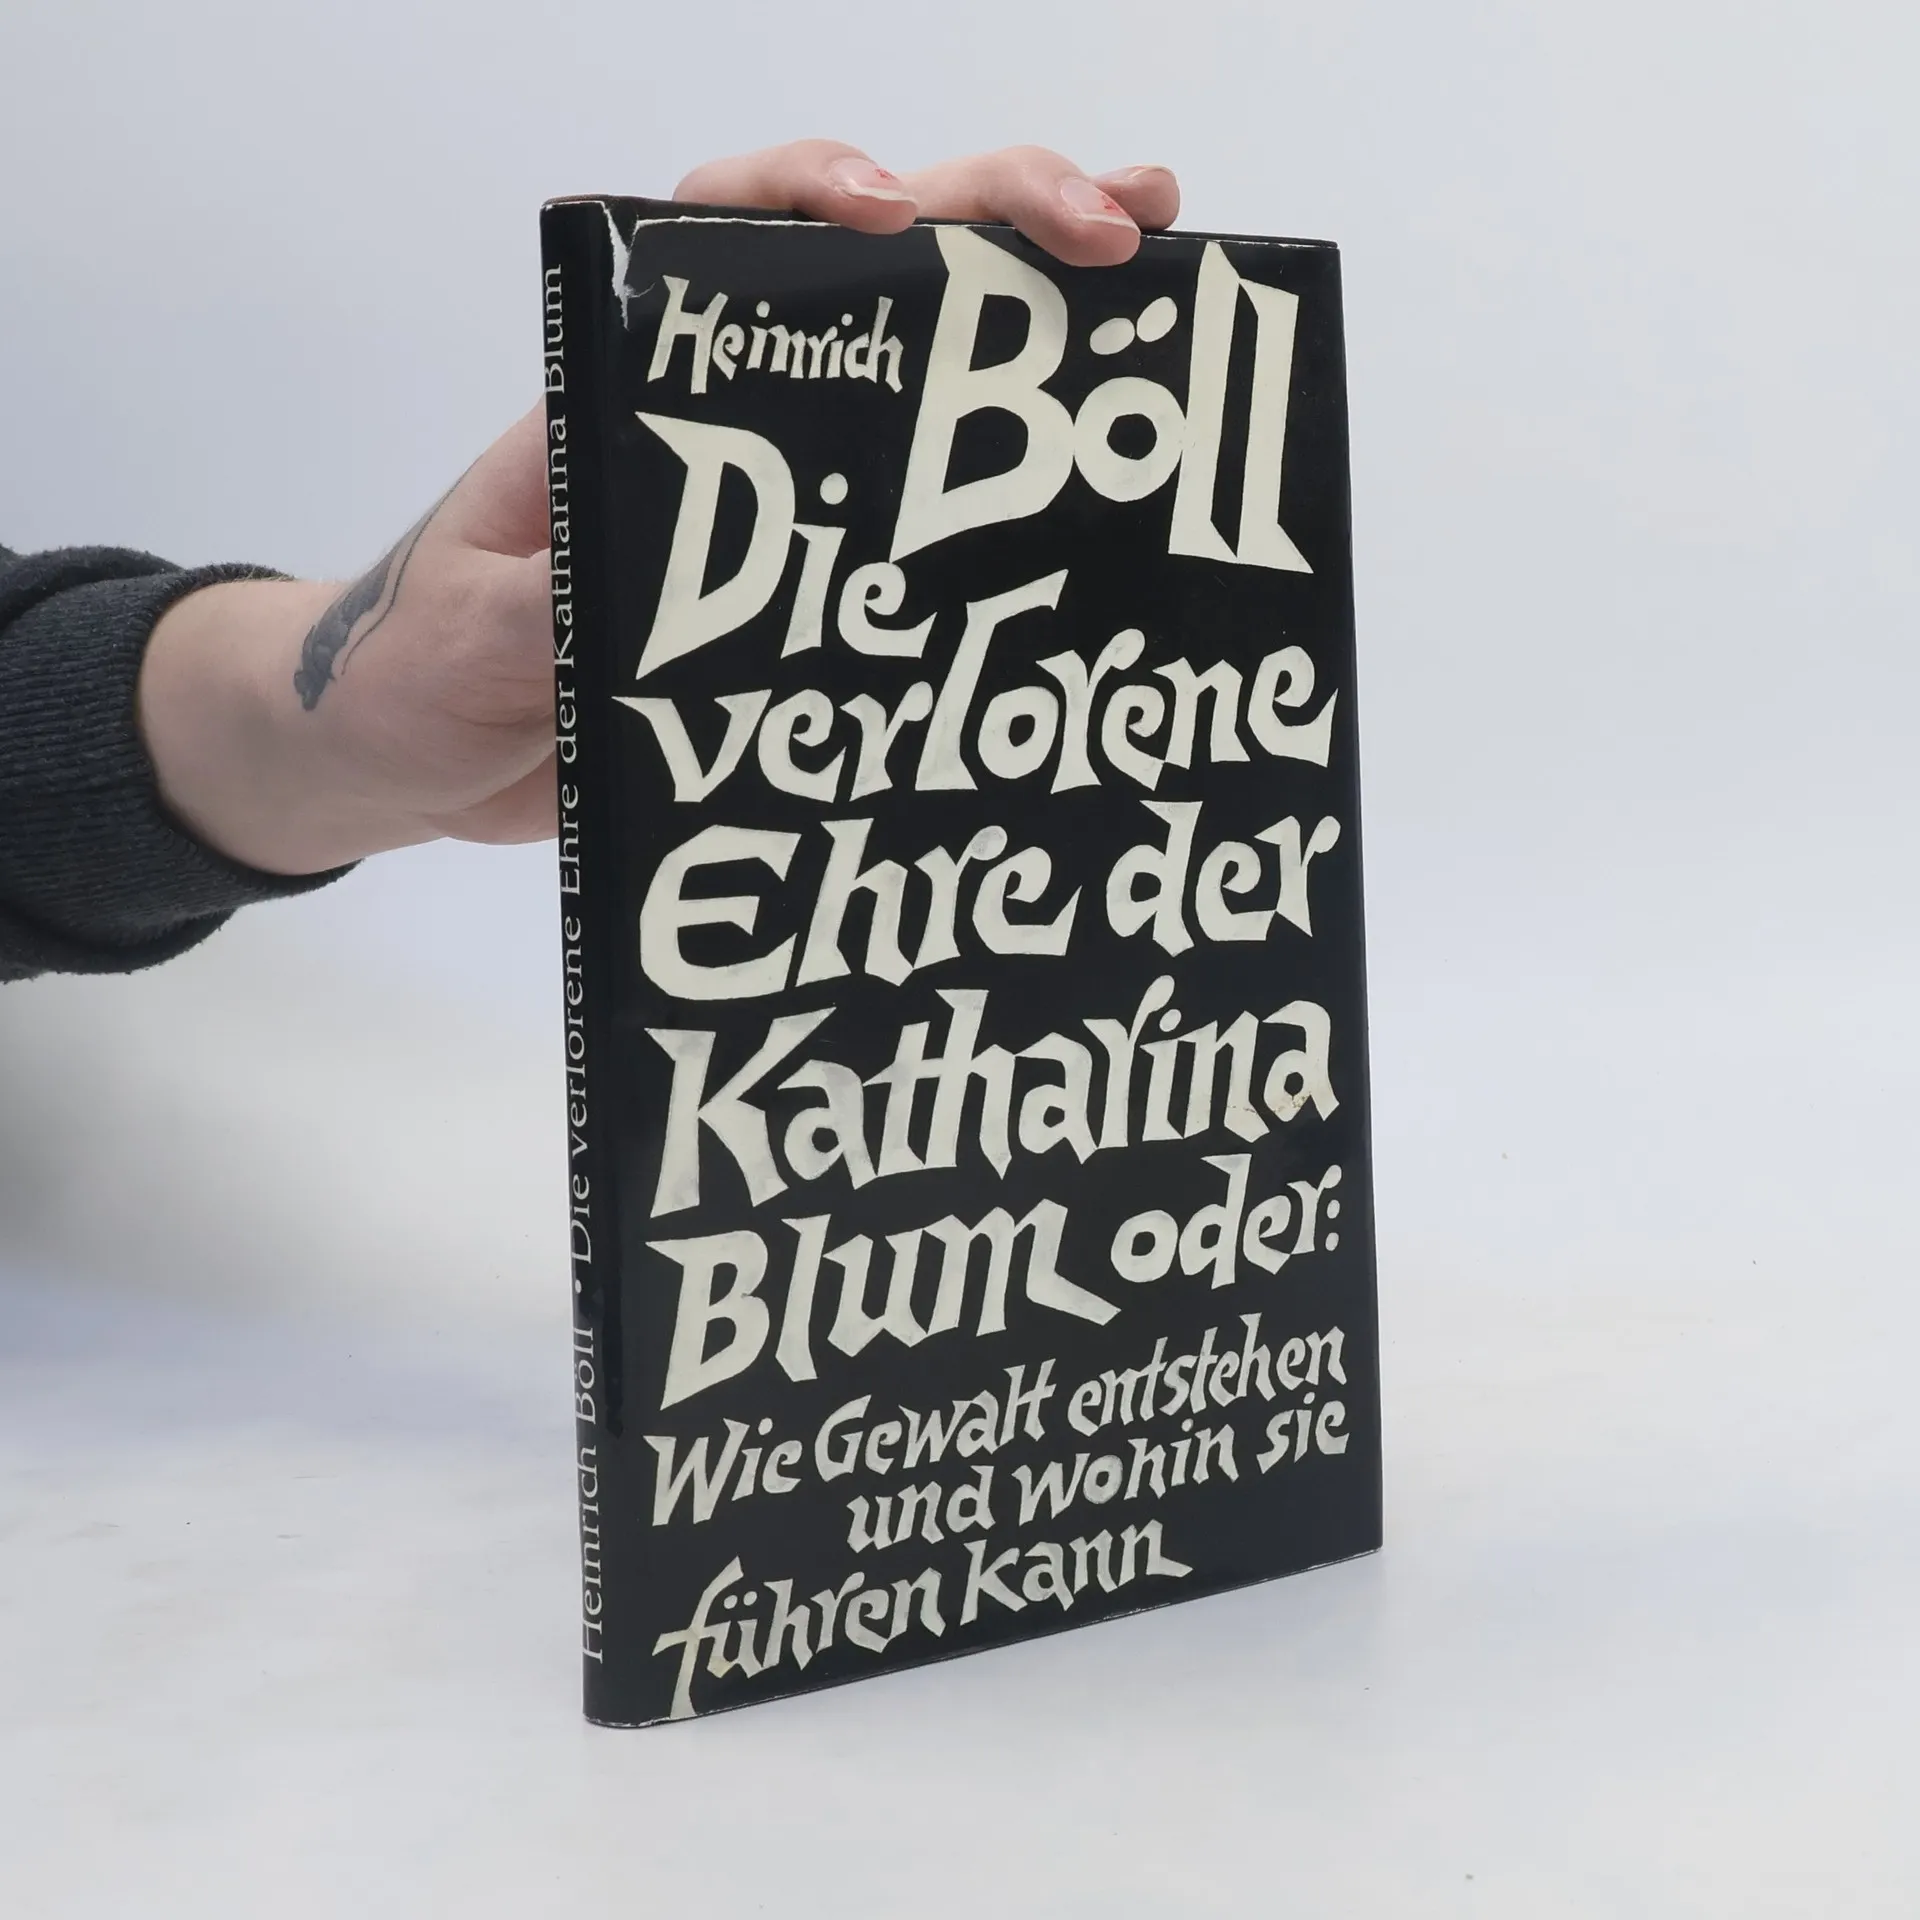 Heinrich Böll
Die
verlorene
Ehre der
Katharina
Blum oder:
Wie Gewalt entstehen
und wohin sie
führen kann
Heinrich Böll · Die verlorene Ehre der Katharina Blum